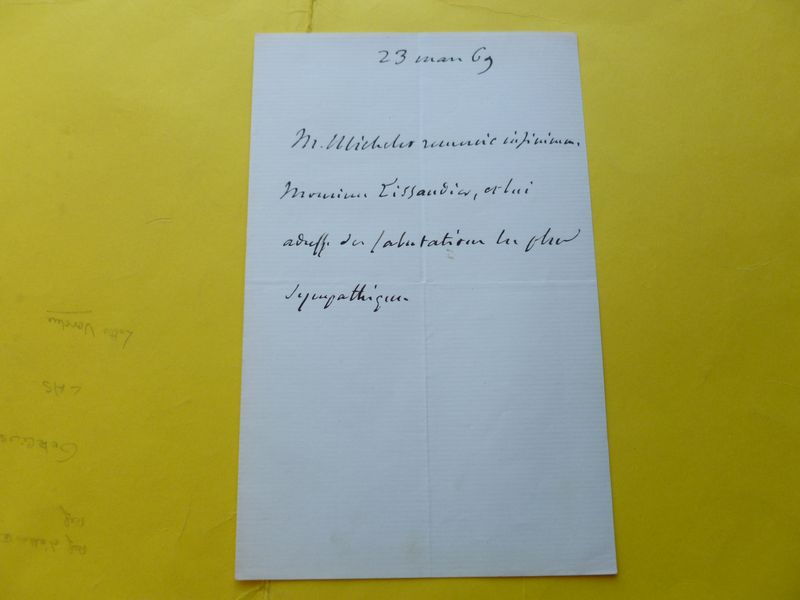 23 mars 69
M. Michelet remercie infiniment
Monsieur Tissandier, et lui
adresse ses salutations les plus
sympathiques
LAS